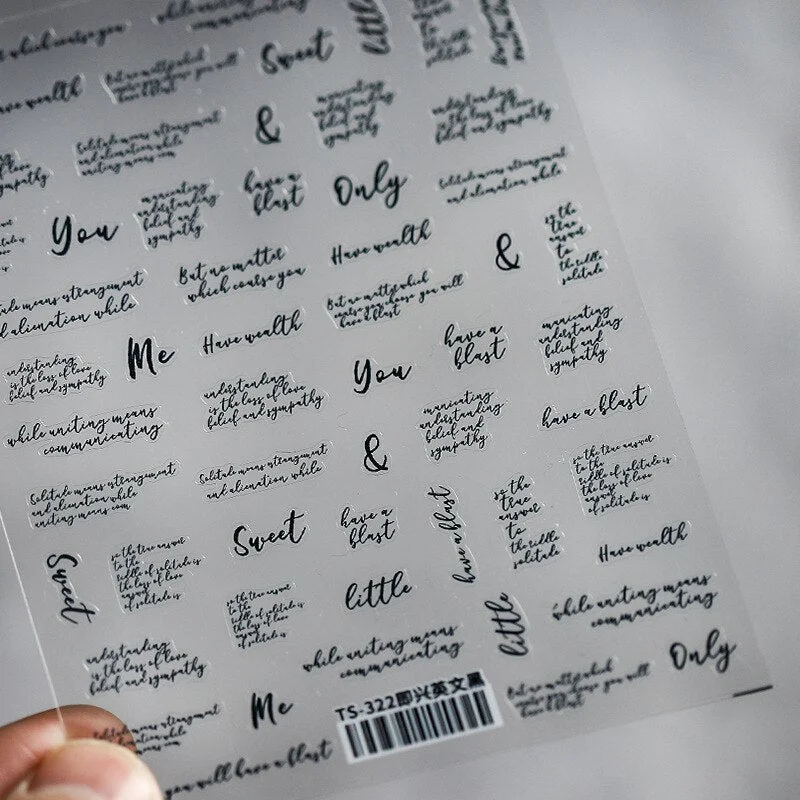 which course you
while uniting means
communicating
Sweet
little
Have wealth
But no matter which
course you choose you will
have a blast
&
manicating
understanding
belief and
sympathy
understanding
is the loss of love
belief and sympathy
Solitude means estrangement
and alienation while
uniting means com
You
manicating
understanding
belief and
sympathy
have a
blast
Only
Solitude means estrangement
and alienation while
means estrangement
alienation while
But no matter
which course you
Have wealth
&
so the
true
answer
to
the riddle
solitude
understanding
is the loss of love
belief and sympathy
Me
Have wealth
But no matter which
course you choose you will
have a blast
have a
blast
manicating
understanding
belief and
sympathy
while uniting means
communicating
understanding
is the loss of love
belief and sympathy
You
manicating
understanding
belief and
sympathy
have a blast
Solitude means estrangement
and alienation while
uniting means com
Solitude means estrangement
and alienation while
&
so the true answer
to the
riddle of solitude is
the loss of love
answer
of solitude is
Sweet
so the true answer
to the
riddle of solitude is
the loss of love
answer
of solitude is
Sweet
have a
blast
have a blast
so the
true
answer
to
the riddle
solitude
Have wealth
so the true answer
to the
riddle of solitude is
the loss of love
answer
of solitude is
little
little
while uniting means
communicating
understanding
is the loss of love
belief and sympathy
while uniting means
communicating
Only
means estrangement
and alienation while
uniting means com
Me
TS-322即兴英文黑
But no matter which
course you choose you will
have a blast
you will have a blast